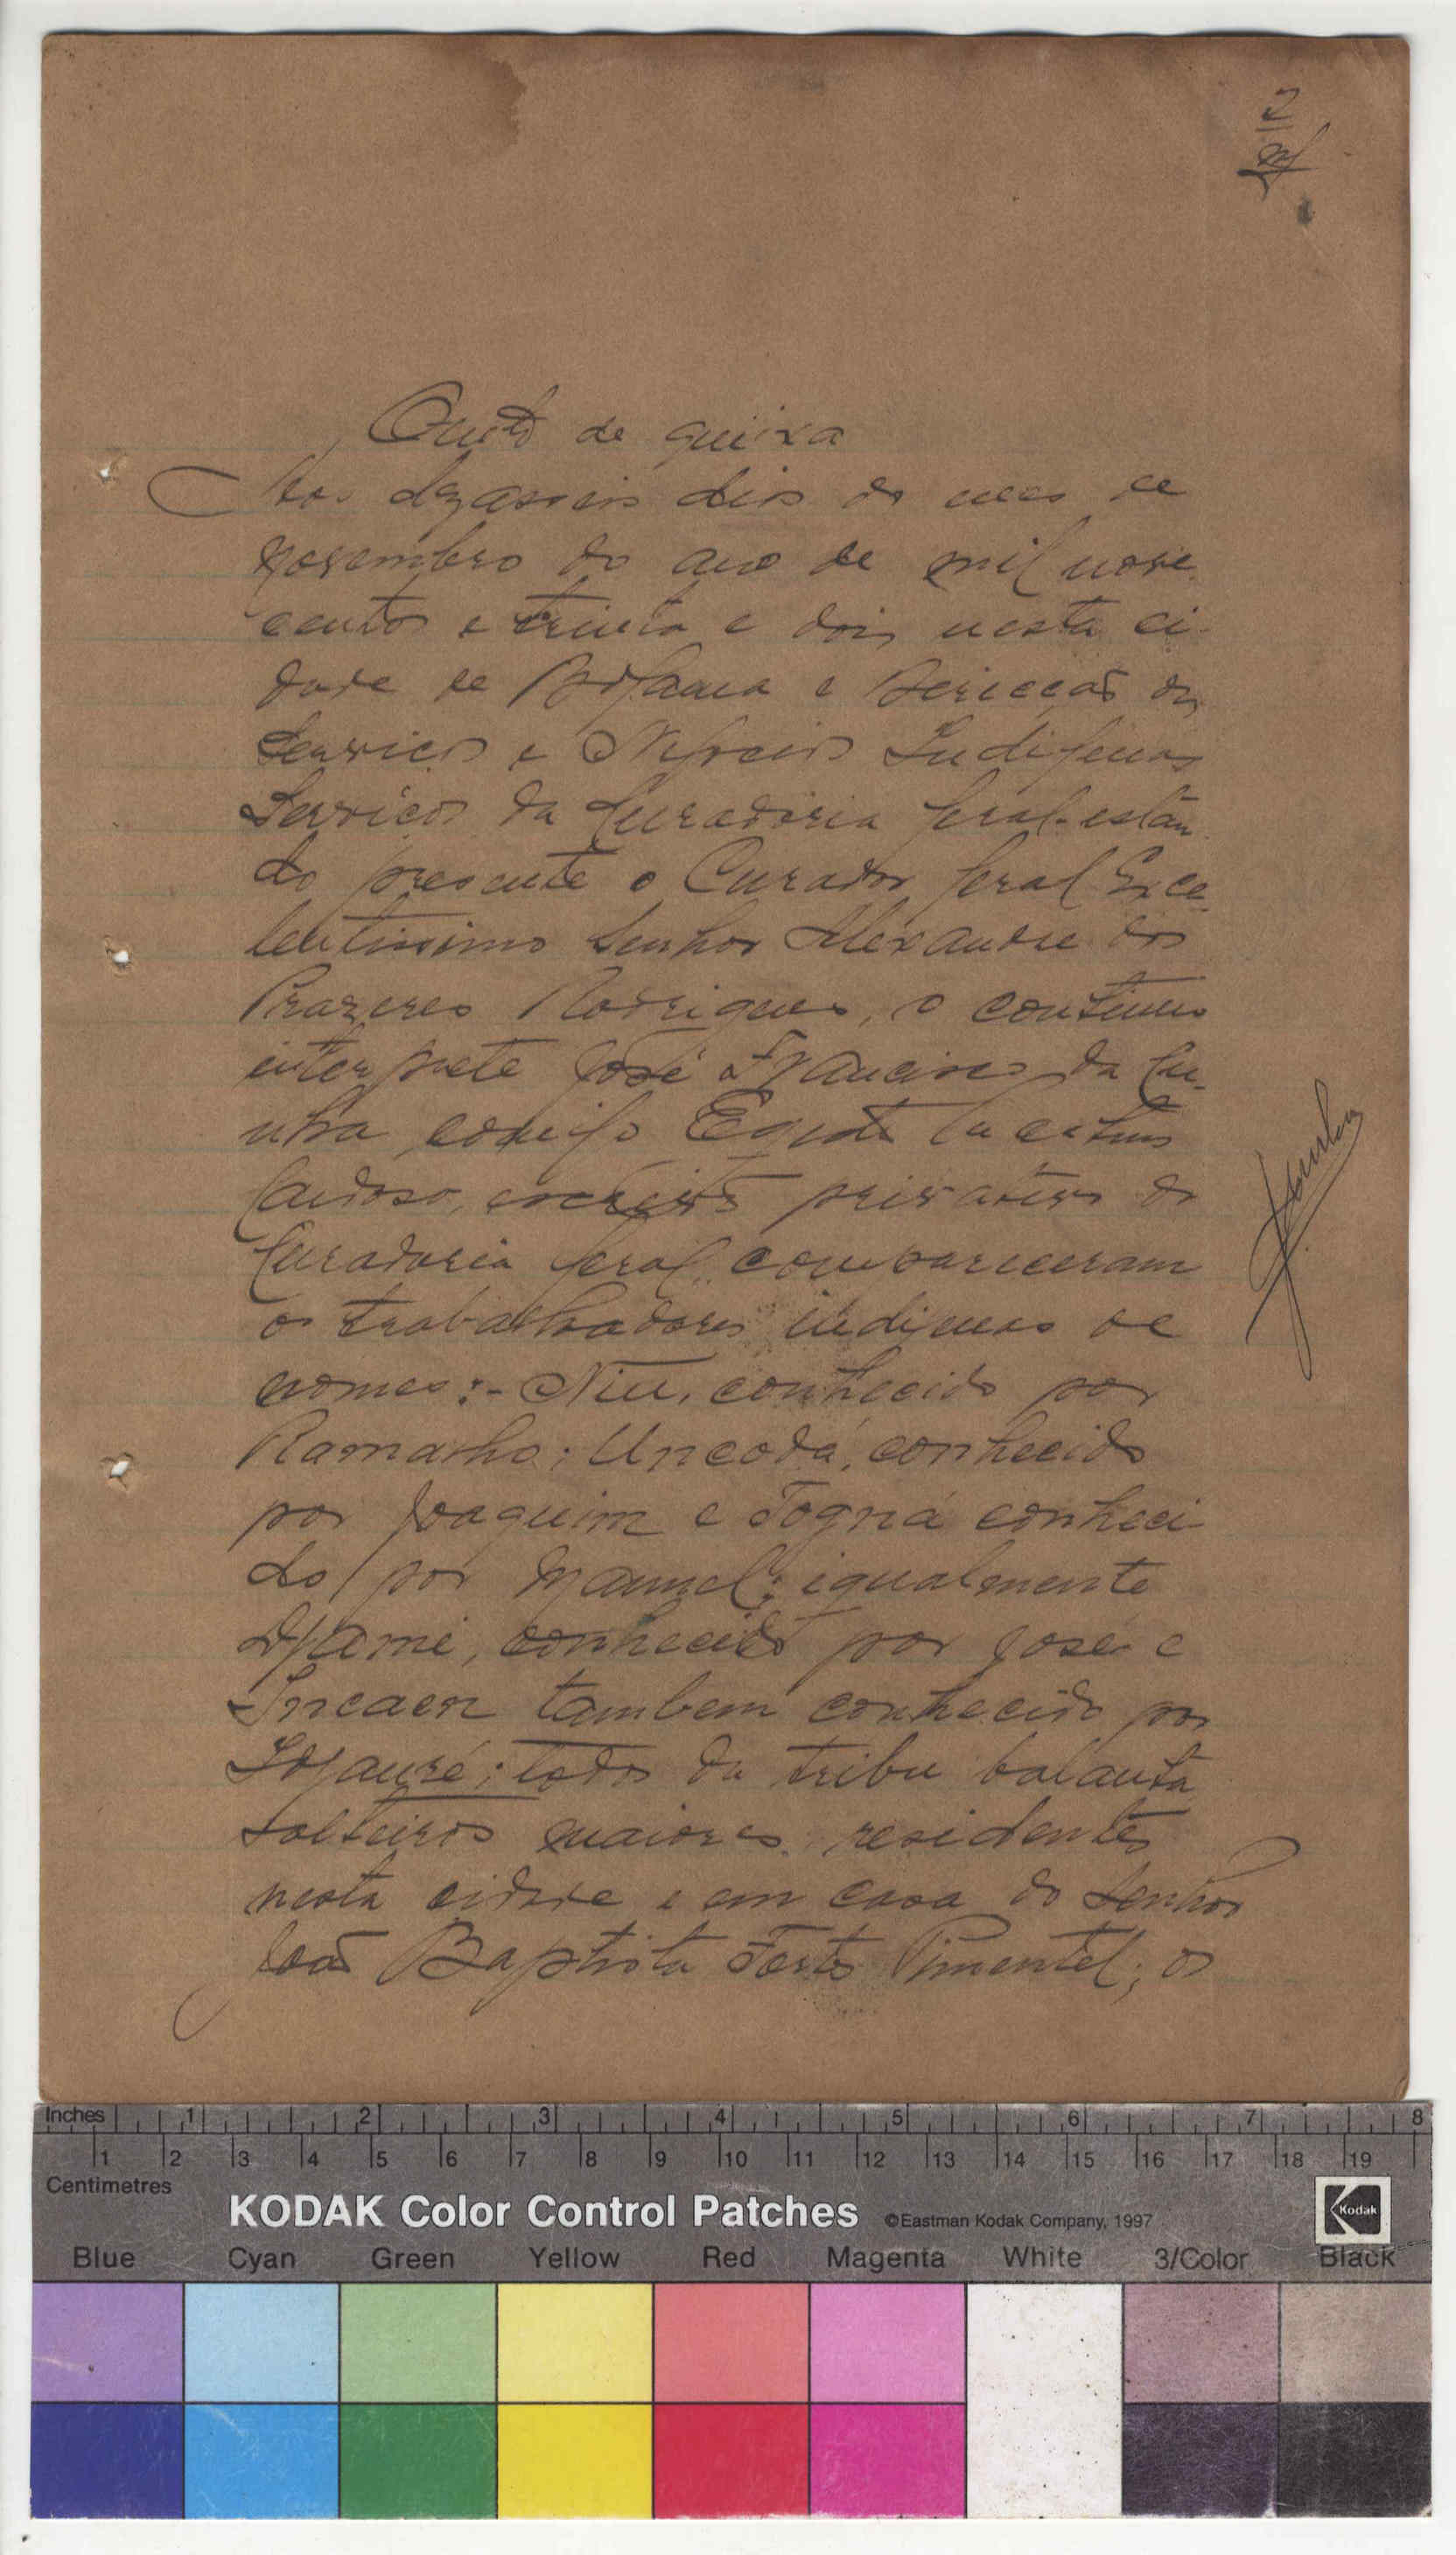 2
Auto de queixa
Aos dezasseis dias do mes de
Novembro do ano de mil nove
centos e trinta e dois nesta ci-
dade de Bolama e Direcção dos
Serviços e Negocios Indigenas
Serviços da Curadoria Geral estan
do presente o Curador Geral Exce
lentissimo Senhor Alexandre dos
Prazeres Rodrigues, o continuo
interprete José Francisco da Cu-
nha, comigo
Cardoso, privativo da
Curadoria Geral compareceram
os trabalhadores indigenas de
nomes:- Niu, conhecido por
Ramalho; Uncodá, conhecido
por Joaquim e Togná conheci
do por Manuel; igualmente
Djamé, conhecido por José e
Incaen tambem conhecido por
todos da tribu balanta
solteiros maiores, residentes
nesta cidade e em casa do Senhor
João Baptista Forts Pimentel; os
Cunha
Inches 1 2 3 4 5 6 7 8
1 2 3 4 5 6 7 8 9 10 11 12 13 14 15 16 17 18 19
Centimetres
KODAK Color Control Patches ©Eastman Kodak Company, 1997 Kodak
Blue Cyan Green Yellow Red Magenta White 3/Color Black